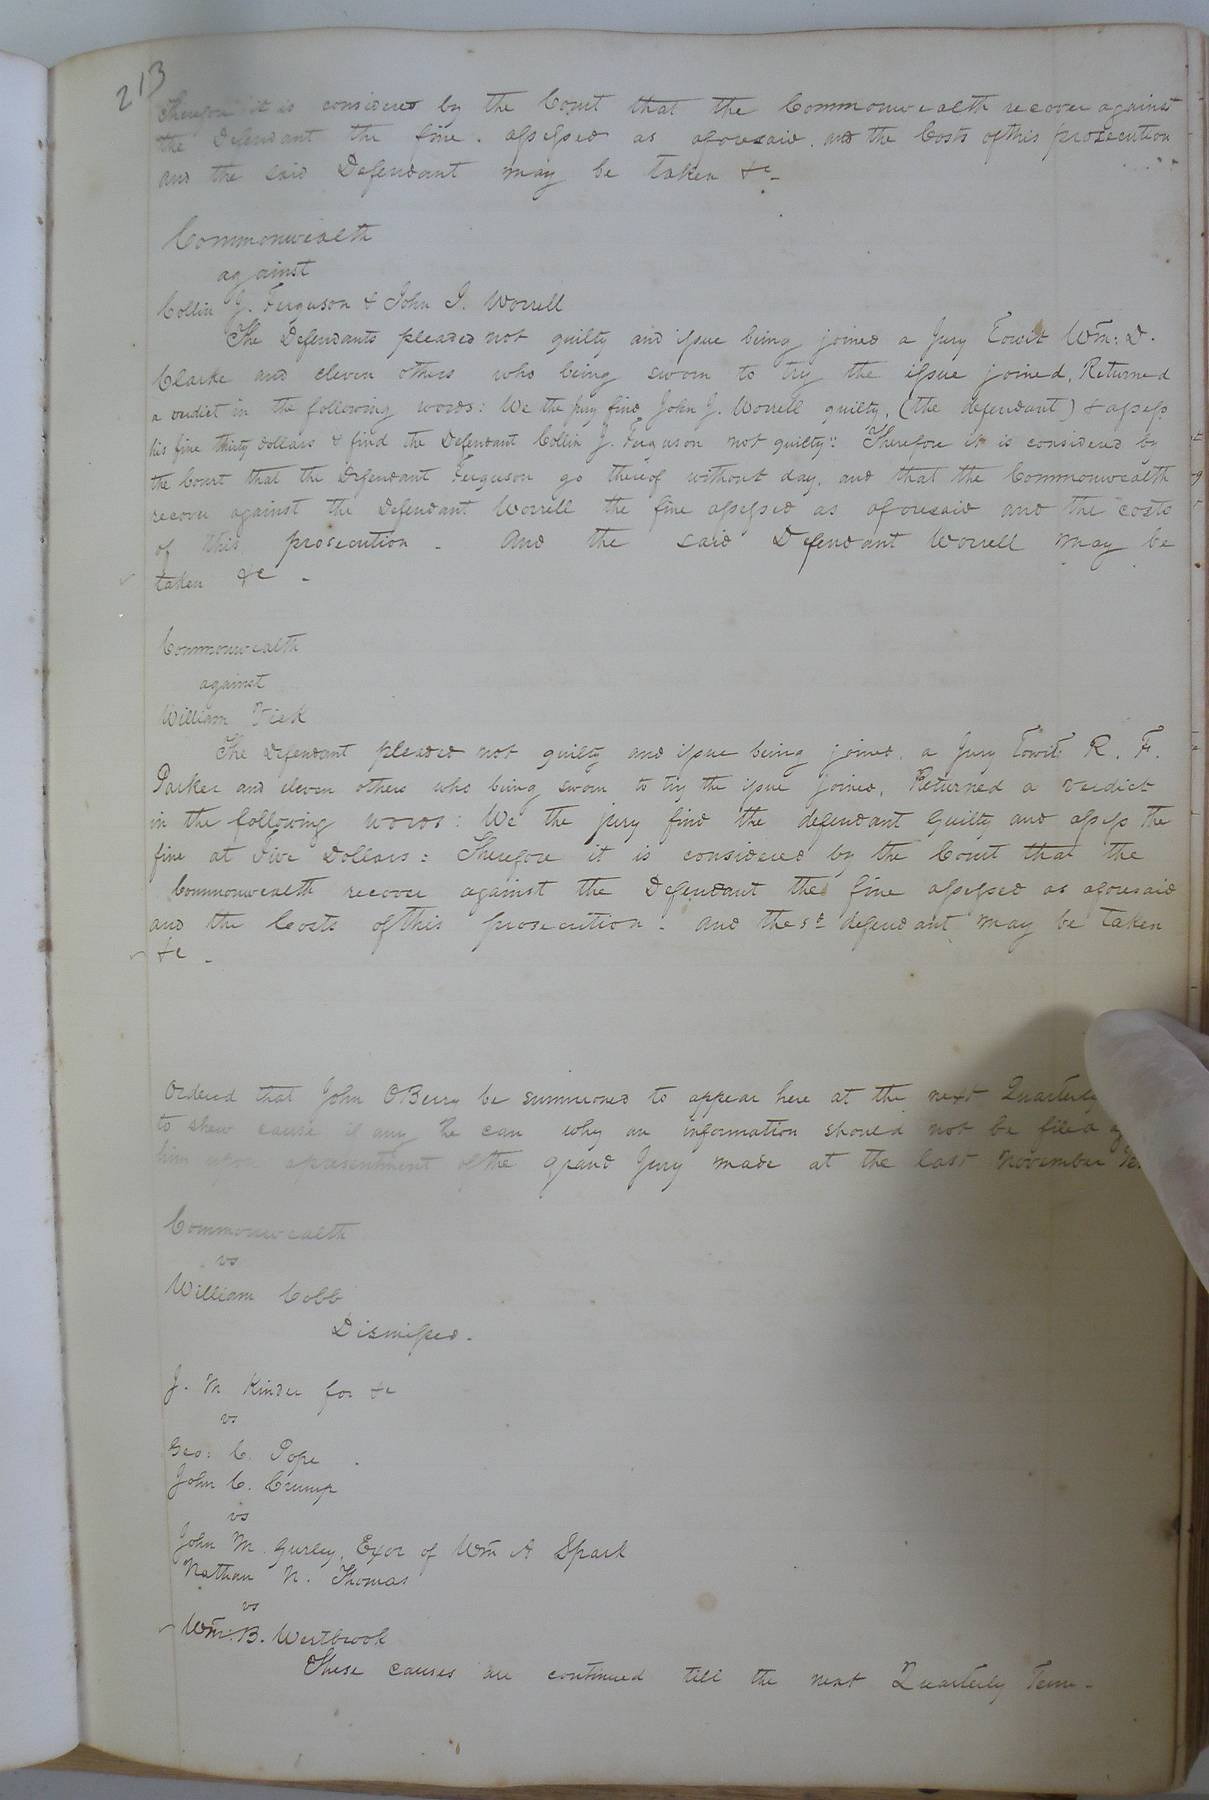 213
Therefore it is considered by the Court that the Commonwealth recover against
the Defendant the fine assessed as aforesaid and the Costs of this prosecution
and the said Defendant may be taken &c -
Commonwealth
against
Collin J. Ferguson & John J. Worrell
The Defendants pleaded not guilty and issue being joined a Jury Towit Wm: D.
Clarke and eleven others who being sworn to try the issue joined, Returned
a verdict in the following words: We the jury find John J. Worrell guilty, (the defendant) & assess
his fine thirty dollars & find the Defendant Collin J. Ferguson not guilty": Therefore it is considered by
the Court that the Defendant Ferguson go thereof without day, and that the Commonwealth
recover against the Defendant Worrell the fine assessed as aforesaid and the costs
of this prosecution - And the said Defendant Worrell may be
taken &c -
Commonwealth
against
William Vick
The Defendant pleaded not guilty and issue being joined, a Jury Towit R. F.
Parker and eleven others who being sworn to try the issue joined, Returned a verdict
in the following words: We the jury find the defendant Guilty and assess the
fine at Five Dollars: Therefore it is considered by the Court that the
Commonwealth recover against the Defendant the fine assessed as aforesaid
and the Costs of this prosecution - and the sd defendant may be taken
&c -
Ordered that John OBerry be summoned to appear here at the next Quarterly
to shew cause if any he can why an information should not be filed
him upon a presentment of the grand Jury made at the last November
Commonwealth
vs
William Cobb
Dismissed -
J. M Kinder for &c
vs
Geo: C. Pope
John C. Crump
vs
John M Gurley, Exor of Wm A Spark
Nathan N. Thomas
vs
Wm. B. Westbrook
These causes are continued till the next Quarterly Term -